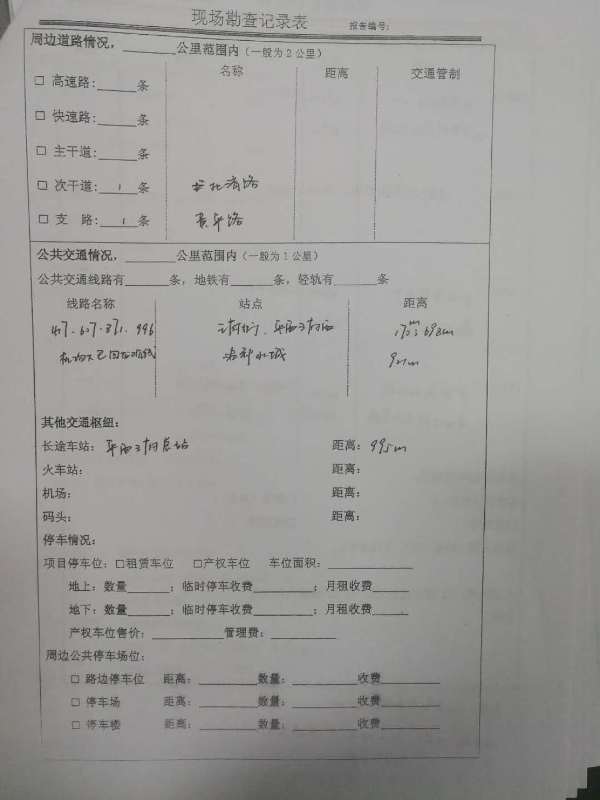 现场勘查记录表 报告编号:
周边道路情况，______公里范围内（一般为2公里）
名称 距离 交通管制
□ 高速路:_____条
□ 快速路:_____条
□ 主干道:_____条
□ 次干道:__1__条
□ 支 路:__1__条
公共交通情况，______公里范围内（一般为1公里）
公共交通线路有______条，地铁有______条，轻轨有______条
线路名称 站点 距离
996
其他交通枢纽：
长途车站： 距离：995m
火车站： 距离：
机场： 距离：
码头： 距离：
停车情况：
项目停车位：□租赁车位 □产权车位 车位面积：____________
地上：数量______；临时停车收费________；月租收费_____
地下：数量______；临时停车收费________；月租收费_____
产权车位售价：__________管理费：_________
周边公共停车场位：
□ 路边停车位 距离：________数量：_________收费________
□ 停车场 距离：________数量：_________收费________
□ 停车楼 距离：________数量：_________收费________